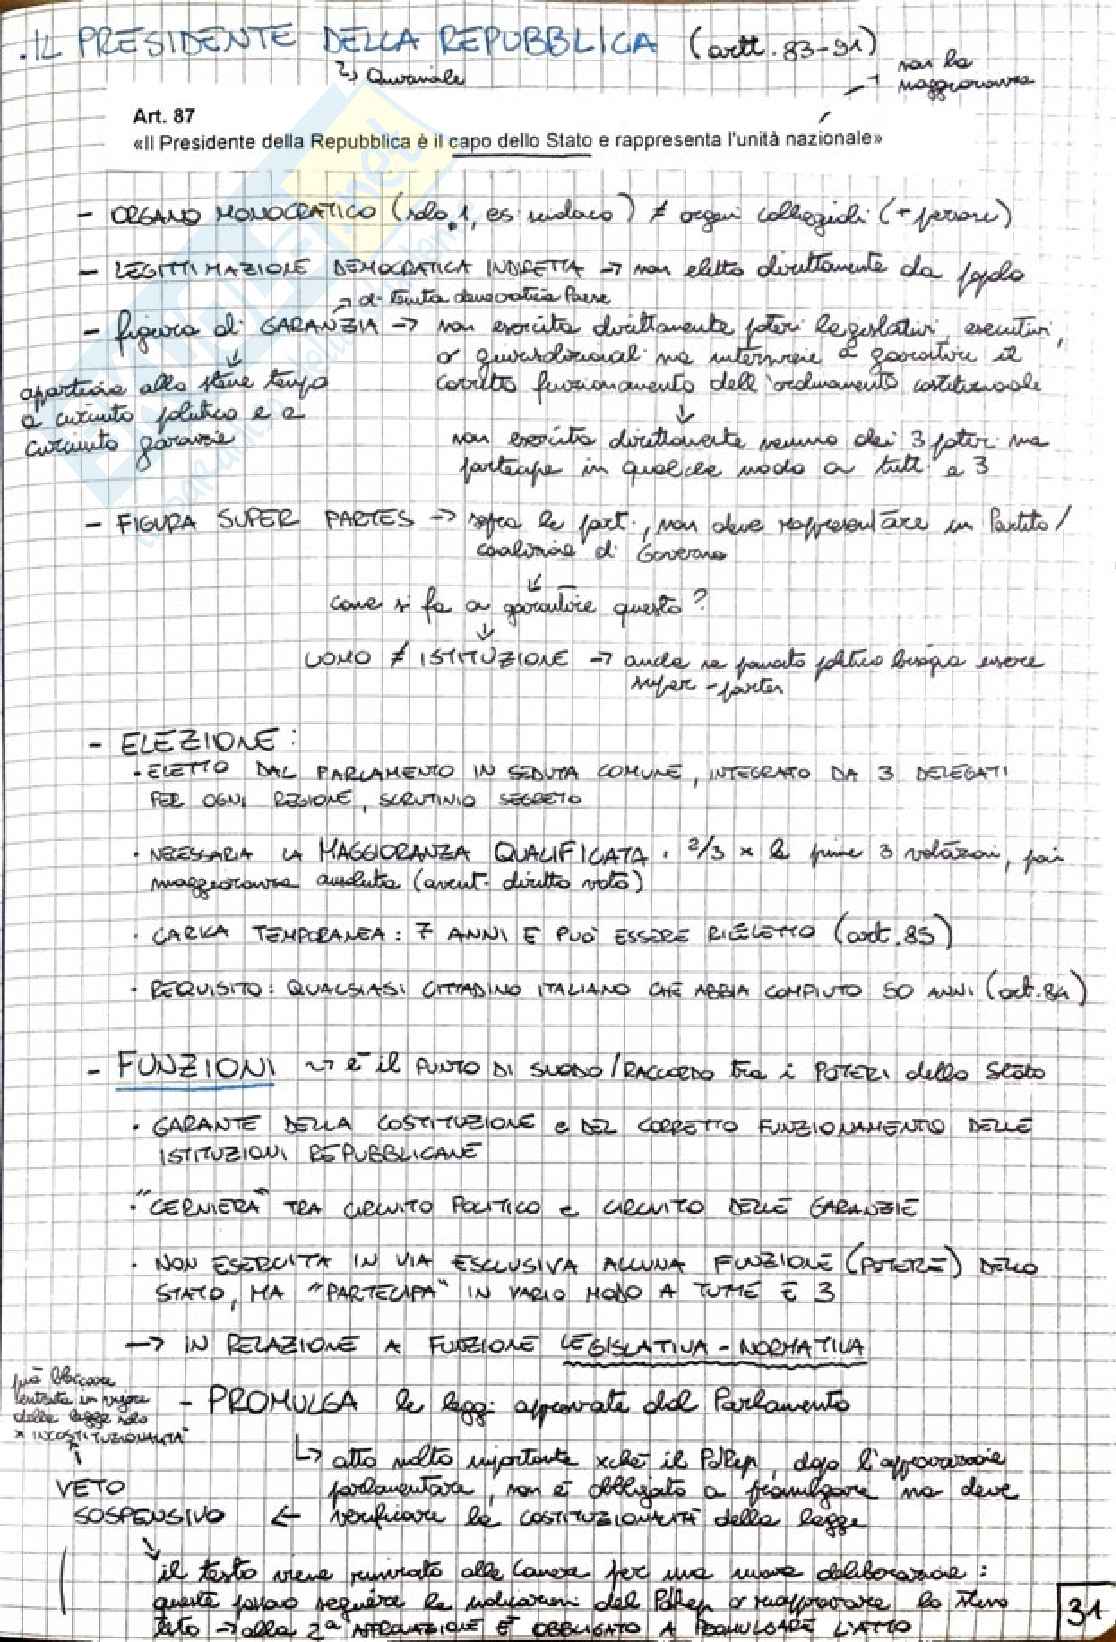 . IL PRESIDENTE DELLA REPUBBLICA (artt. 83-91)
↳ Quirinale
→ non ha
maggioranza
Art. 87
«Il Presidente della Repubblica è il capo dello Stato e rappresenta l'unità nazionale»
- ORGANO MONOCRATICO (solo 1, es sindaco) ≠ organi collegiali (+ persone)
- LEGITTIMAZIONE DEMOCRATICA INDIRETTA → non eletto direttamente da popolo
→ di tenuta democratica Paese
- figura di GARANZIA → non esercita direttamente poteri legislativi, esecutivi,
o giurisdizionali ma interviene a garantire il
corretto funzionamento dell'ordinamento costituzionale
↓
appartiene allo stesso tempo
a circuito politico e a
circuito garanzie
↓
non esercita direttamente nessuno dei 3 poteri ma
partecipa in qualche modo a tutti e 3
- FIGURA SUPER PARTES → sopra le parti, non deve rappresentare un Partito/
coalizione di Governo
↓
come si fa a garantire questo?
↓
UOMO ≠ ISTITUZIONE → anche se passato politico bisogna essere
super-partes
- ELEZIONE:
· ELETTO DAL PARLAMENTO IN SEDUTA COMUNE, INTEGRATO DA 3 DELEGATI
PER OGNI REGIONE, SCRUTINIO SEGRETO
· NECESSARIA LA MAGGIORANZA QUALIFICATA. 2/3 x le prime 3 votazioni, poi
maggioranza assoluta (avent. diritto voto)
· CARICA TEMPORANEA: 7 ANNI E PUÒ ESSERE RIELETTO (art. 85)
· REQUISITO: QUALSIASI CITTADINO ITALIANO CHE ABBIA COMPIUTO 50 ANNI (art. 84)
- FUNZIONI → è il PUNTO DI SNODO/RACCORDO tra i POTERI dello Stato
· GARANTE DELLA COSTITUZIONE e DEL CORRETTO FUNZIONAMENTO DELLE
ISTITUZIONI REPUBBLICANE
· "CERNIERA" TRA CIRCUITO POLITICO e CIRCUITO DELLE GARANZIE
· NON ESERCITA IN VIA ESCLUSIVA ALCUNA FUNZIONE (POTERE) DELLO
STATO, MA "PARTECIPA" IN VARIO MODO A TUTTE E 3
→ IN RELAZIONE A FUNZIONE LEGISLATIVA - NORMATIVA
può bloccare
entrata in vigore
della legge solo
x INCOSTITUZIONALITÀ
- PROMULGA le leggi approvate dal Parlamento
↳ atto molto importante xchè il PdRep, dopo l'approvazione
parlamentare, non è obbligato a promulgare ma deve
verificare la COSTITUZIONALITÀ della legge
VETO
SOSPENSIVO ←
↘ il testo viene rinviato alle Camere per una nuova deliberazione:
queste possono seguire le indicazioni del PdRep o riapprovare lo stesso
testo → alla 2ª APPROVAZIONE È OBBLIGATO A PROMULGARE L'ATTO
31